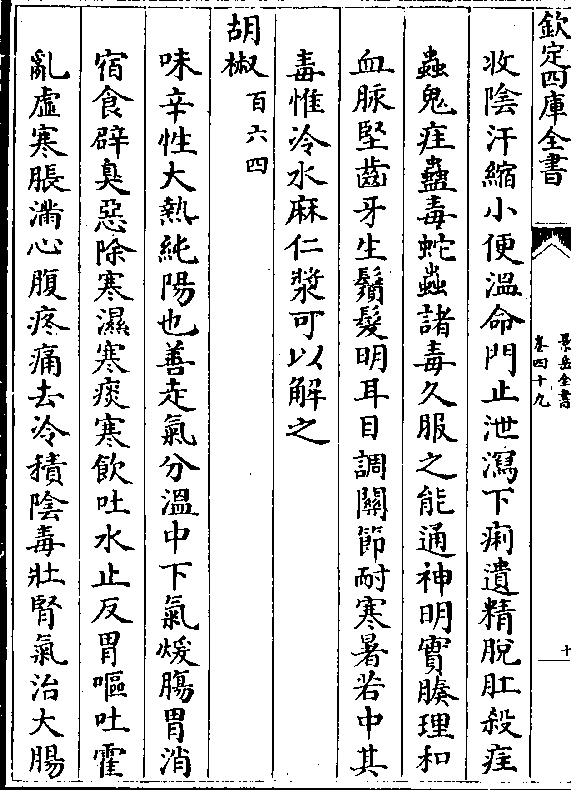 欽定四庫全書
景岳全書
卷四十九
十
收陰汗縮小便溫命門止泄瀉下痢遺精脫肛殺疰
蟲鬼疰蠱毒蛇蟲諸毒久服之能通神明實腠理和
血脉堅齒牙生鬚髮明耳目調關節耐寒暑若中其
毒惟冷水麻仁漿可以解之
胡椒百六四
味辛性大熱純陽也善走氣分溫中下氣煖腸胃消
宿食辟臭惡除寒濕寒痰寒飲吐水止反胃嘔吐霍
亂虛寒脹滿心腹疼痛去冷積陰毒壯腎氣治大腸